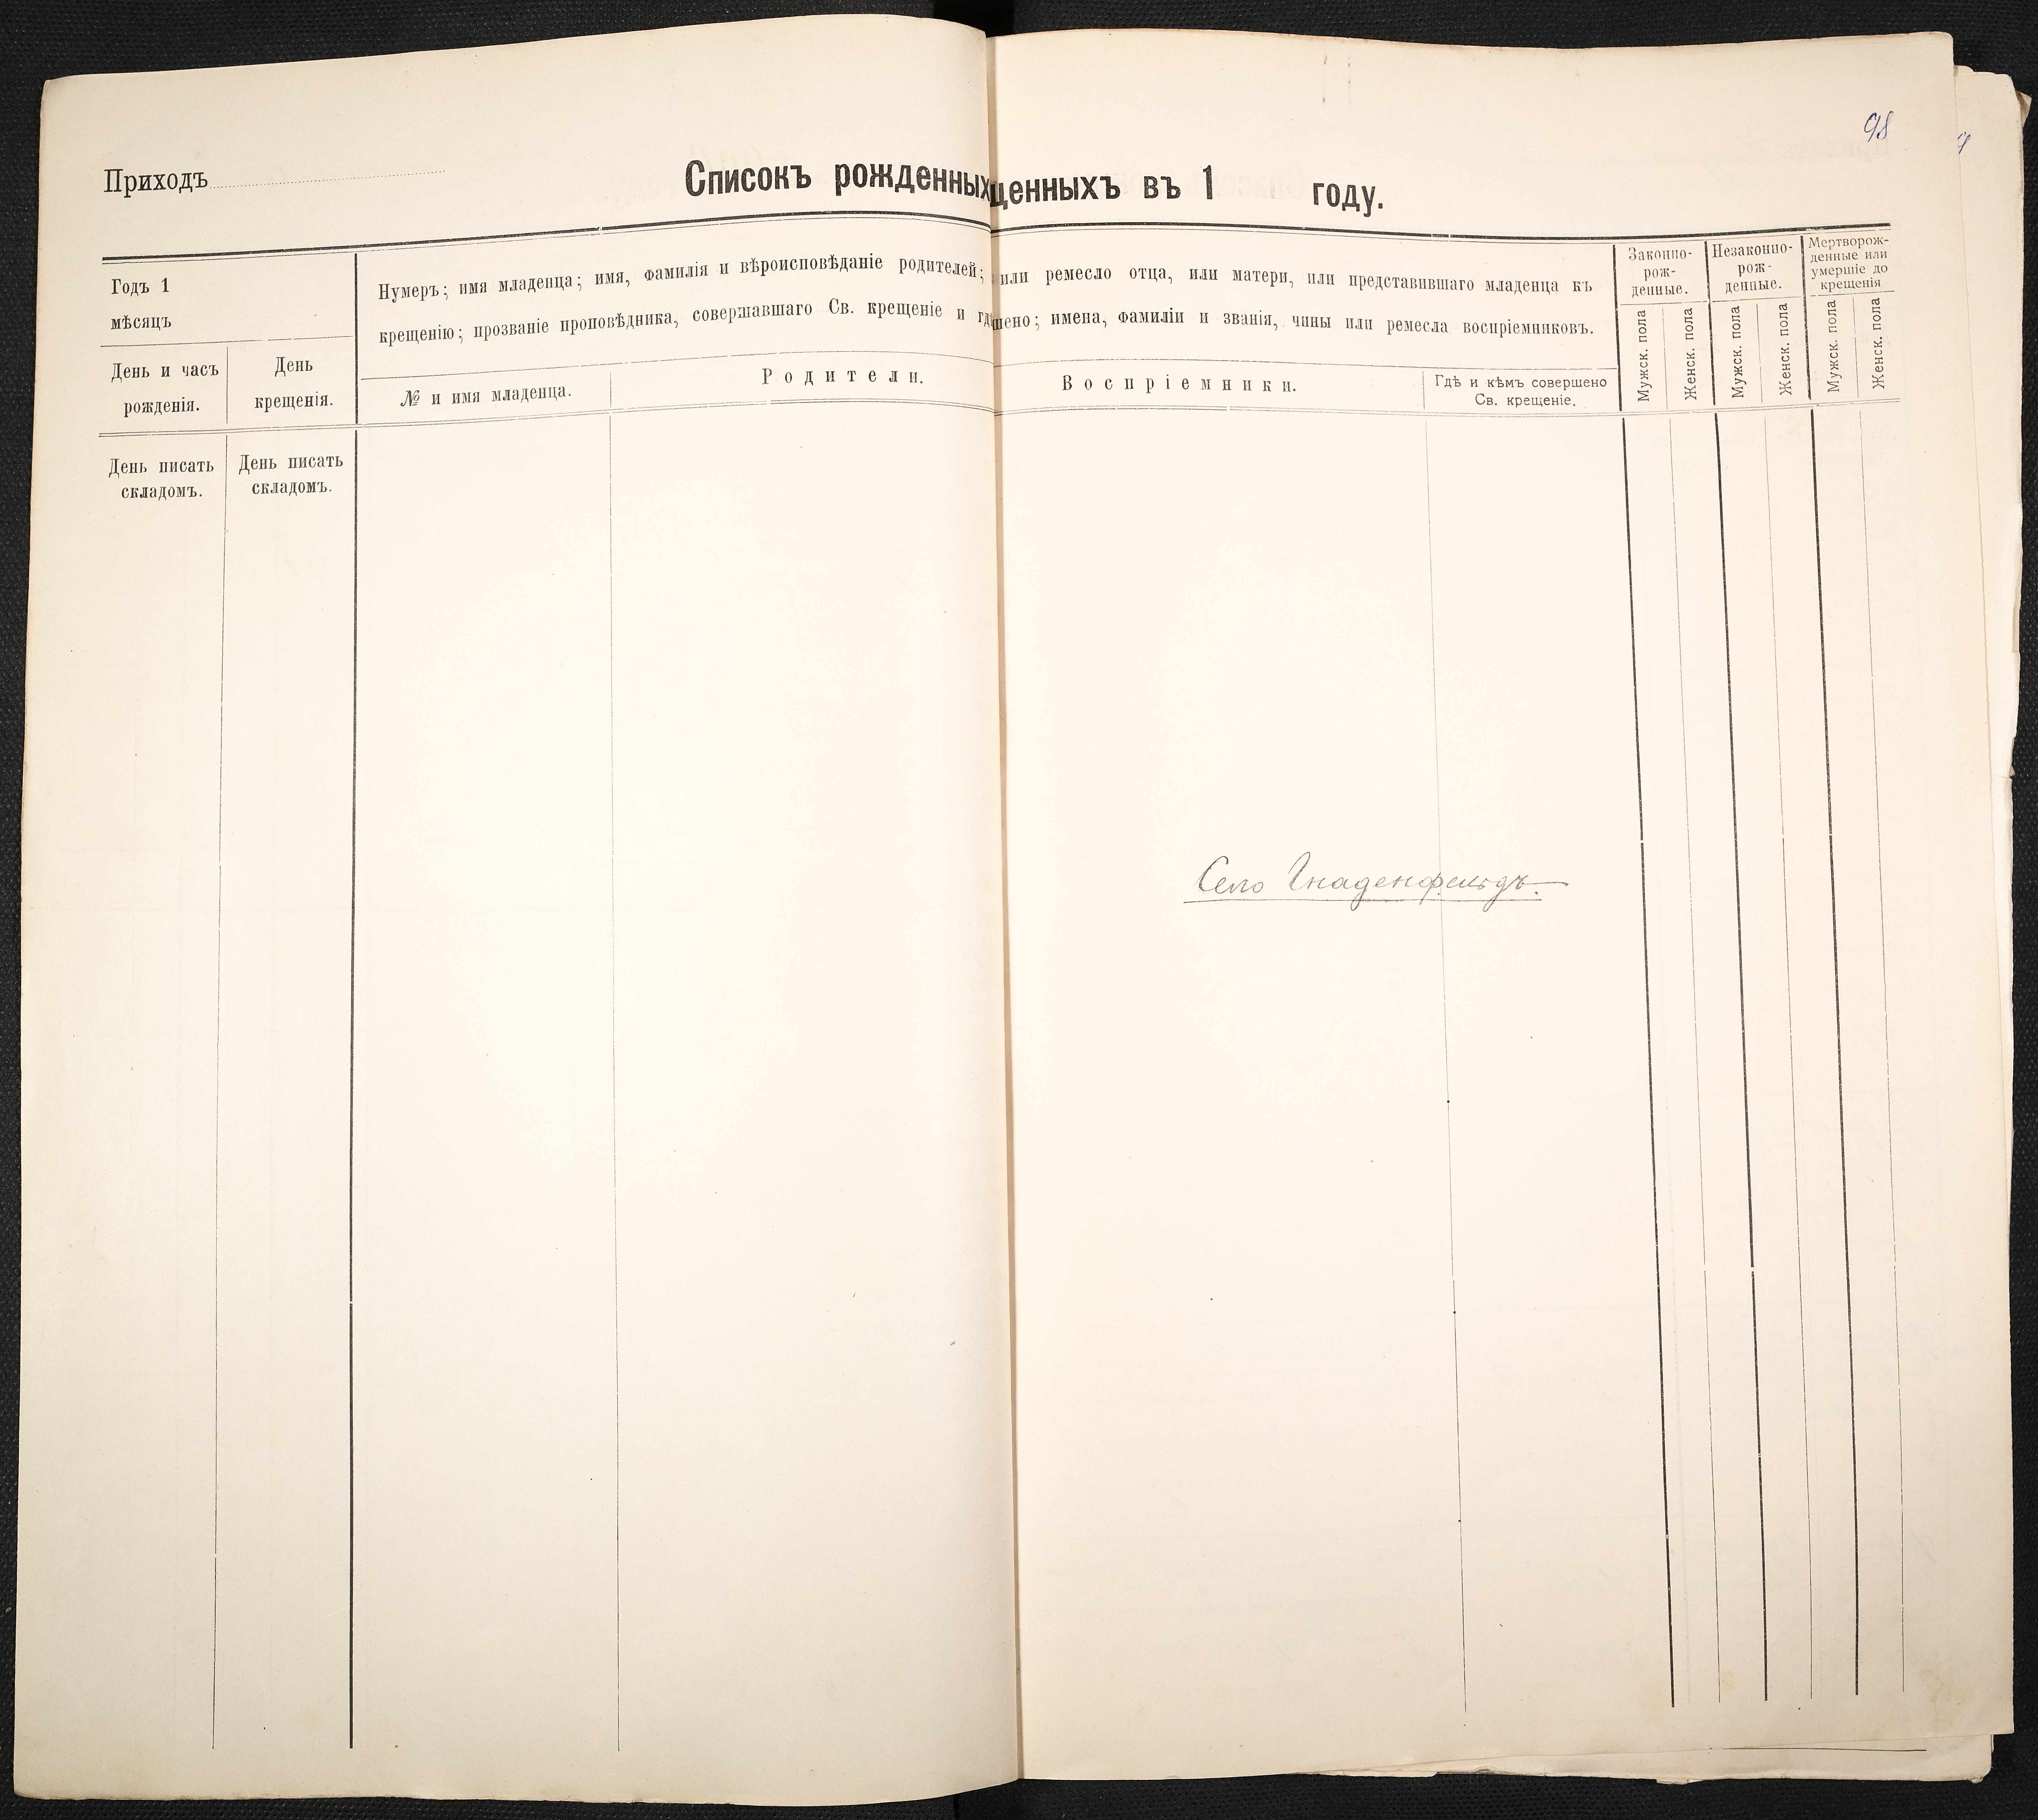 98
Приходъ
Списокъ рожденныхщенныхъ въ 1 году.
Годъ 1
мѣсяцъ
День и часъ
рожденія.
День
крещенія.
Нумеръ; имя младенца; имя, фамилія и вѣроисповѣданіе родителей; или ремесло отца, или матери, или представившаго младенца къ
крещенію; прозваніе проповѣдника, совершавшаго Св. крещеніе и гдѣ шено; имена, фамиліи и званія, чины или ремесла воспріемниковъ.
№ и имя младенца.
Родители.
Воспріемники.
Гдѣ и кѣмъ совершено
Св. крещеніе.
Законно-
рож-
денные.
Незаконно-
рож-
денные.
Мертворож-
денные или
умершіе до
крещенія
Мужск. пола
Женск. пола
Мужск. пола
Женск. пола
Мужск. пола
Женск. пола
День писать
складомъ.
День писать
складомъ.
Село Гнаденфельдъ.